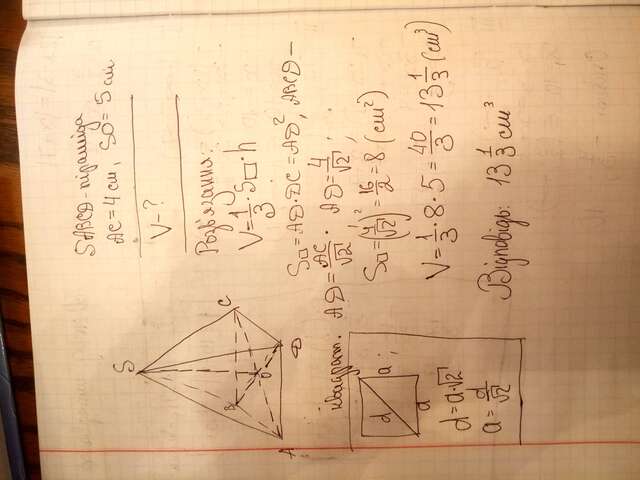 SABCD - піраміда
AC = 4 см, SO = 5 см
V - ?
Розв'язання:
V = 1/3 · S□ · h
S□ = AD · DC = AD², ABCD -
квадрат. AD = AC/√2. AD = 4/√2;
S□ = (4/√2)² = 16/2 = 8 (см²)
V = 1/3 · 8 · 5 = 40/3 = 13 1/3 (см³)
Відповідь: 13 1/3 см³
S
A
B
C
D
O
d
a
a
d = a√2
a = d/√2